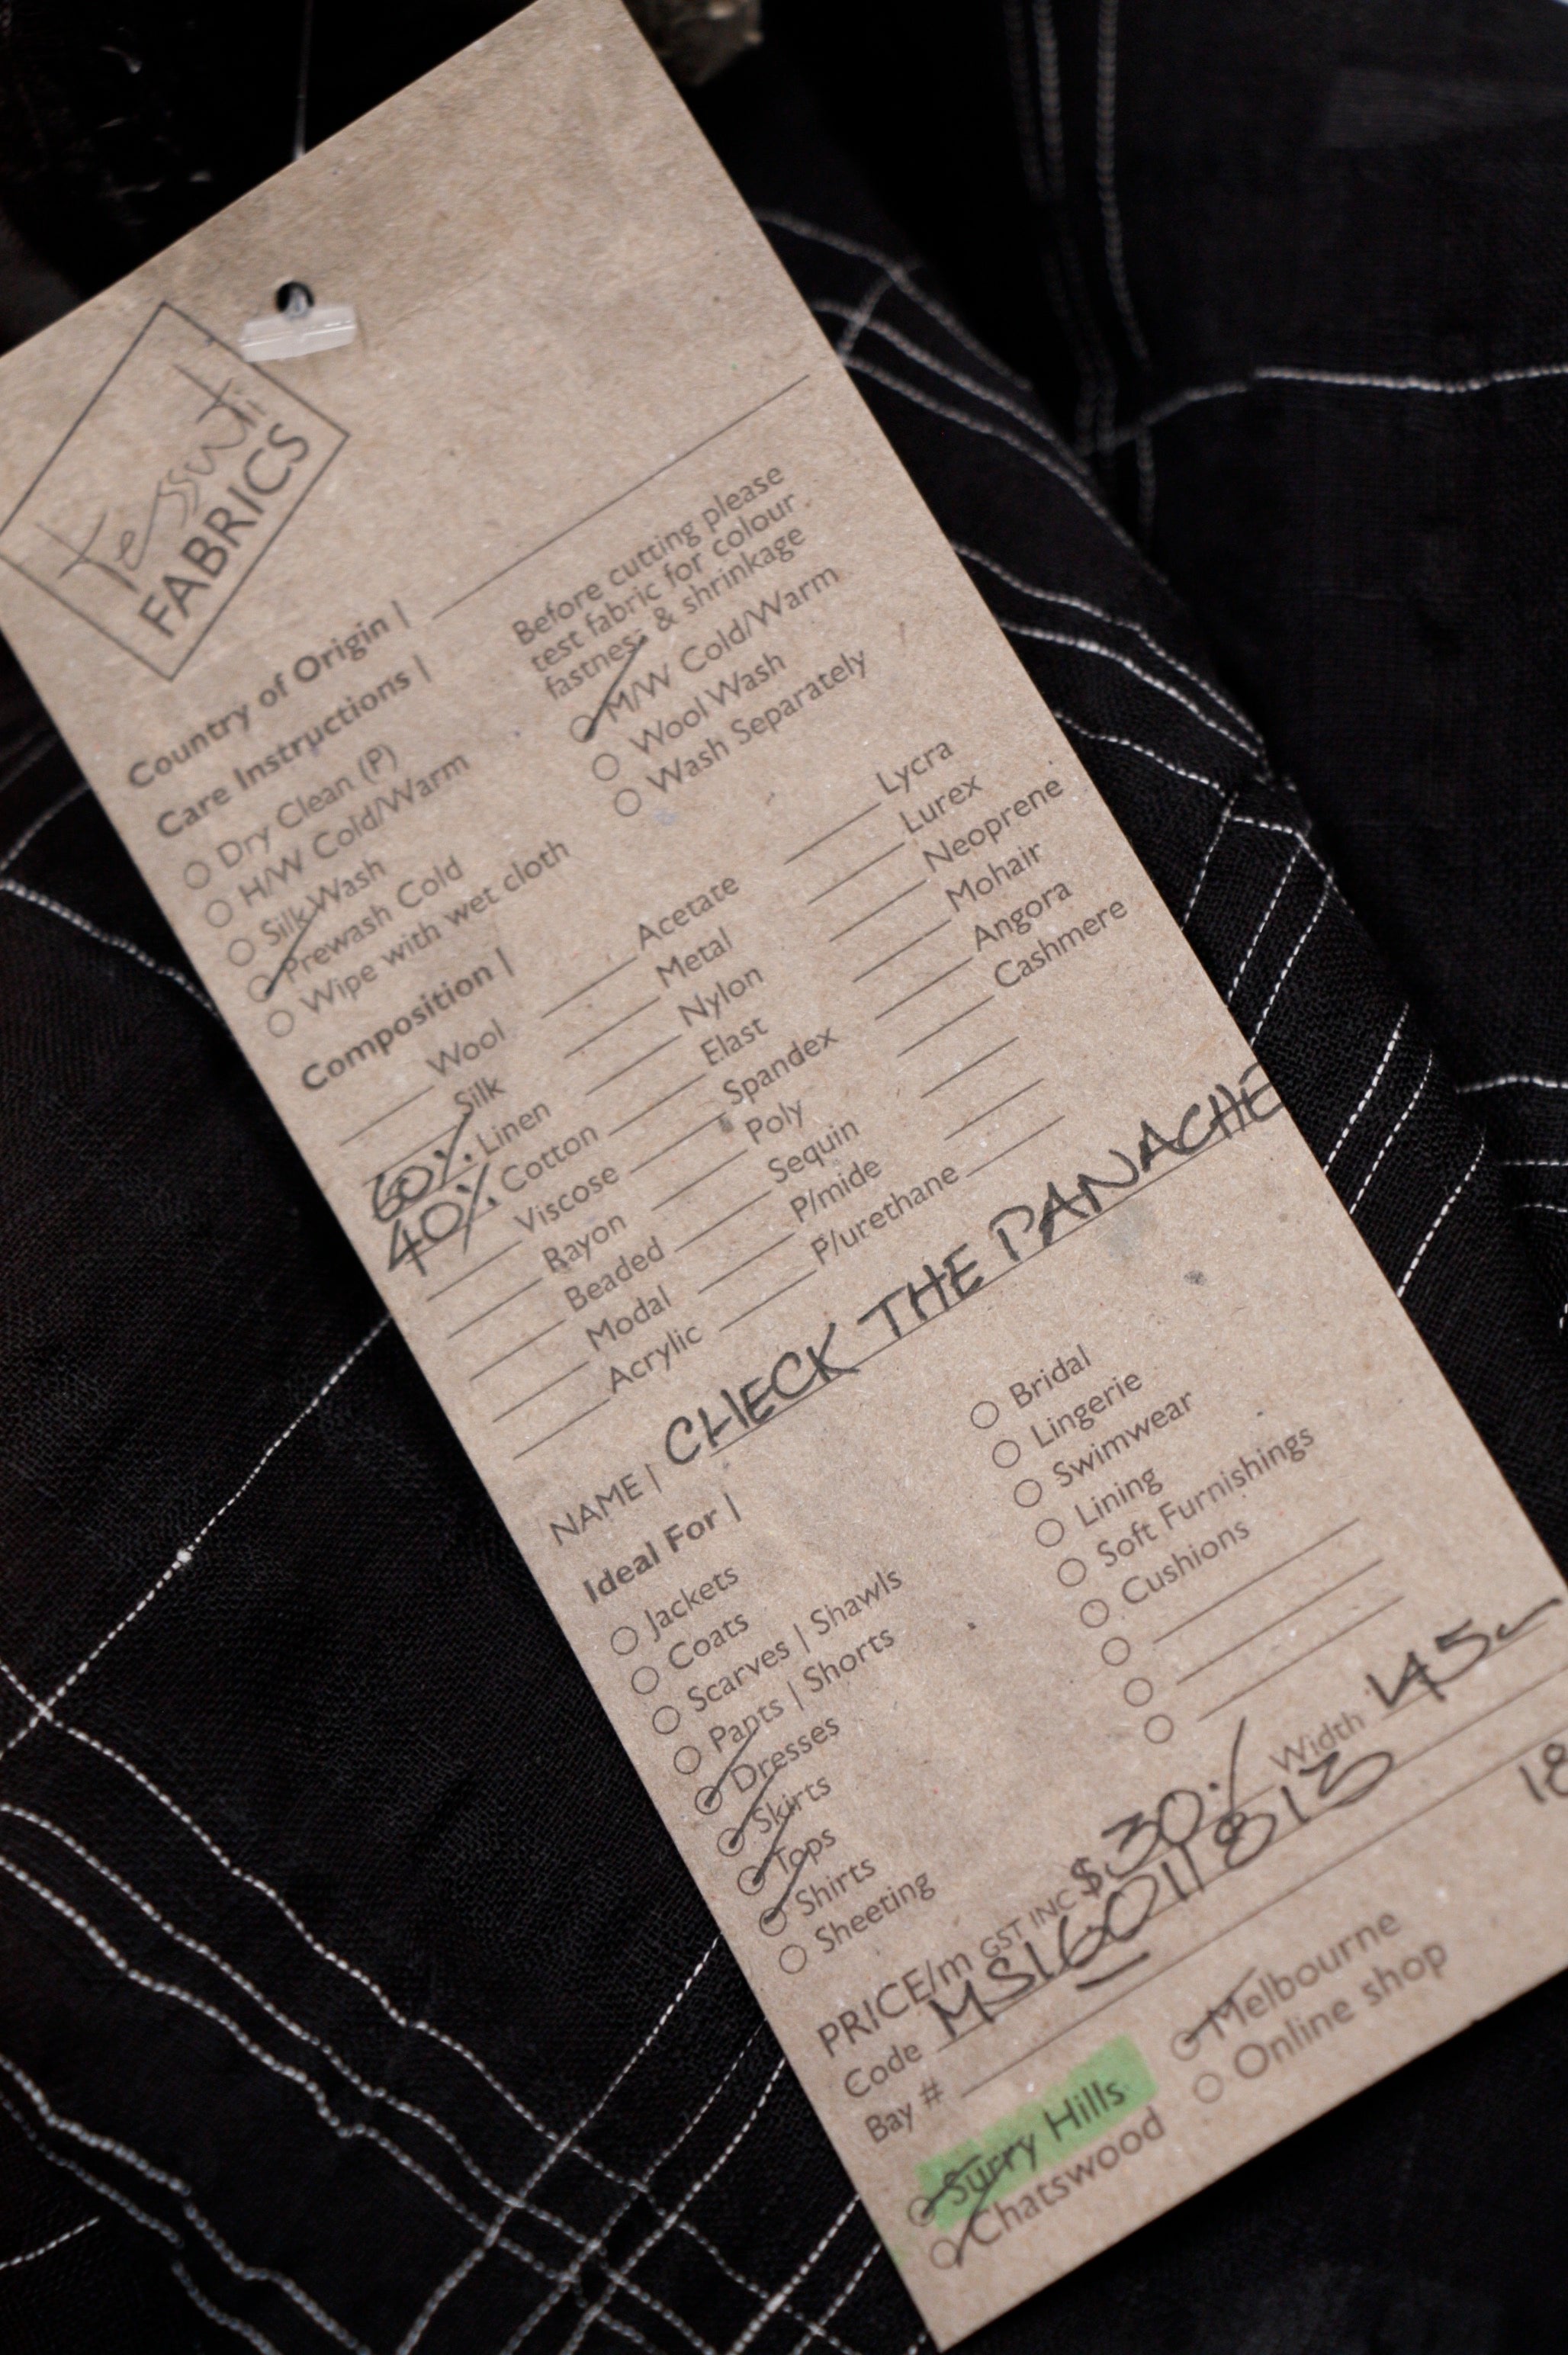 tessuti
FABRICS
Country of Origin |
Care Instructions |
Dry Clean (P)
H/W Cold/Warm
Silk Wash
Prewash Cold
Wipe with wet cloth
Before cutting please
test fabric for colour
fastness & shrinkage
M/W Cold/Warm
Wool Wash
Wash Separately
Composition |
Wool
Silk
60% Linen
40% Cotton
Viscose
Rayon
Beaded
Modal
Acrylic
Acetate
Metal
Nylon
Elast
Spandex
Poly
Sequin
P/mide
P/urethane
Lycra
Lurex
Neoprene
Mohair
Angora
Cashmere
NAME | CHECK THE PANACHE
Ideal For |
Jackets
Coats
Scarves | Shawls
Pants | Shorts
Dresses
Skirts
Tops
Shirts
Sheeting
Bridal
Lingerie
Swimwear
Lining
Soft Furnishings
Cushions
PRICE/m GST INC $30 Width 145
Code MS16011813
18
Bay #
Surry Hills
Chatswood
Melbourne
Online shop